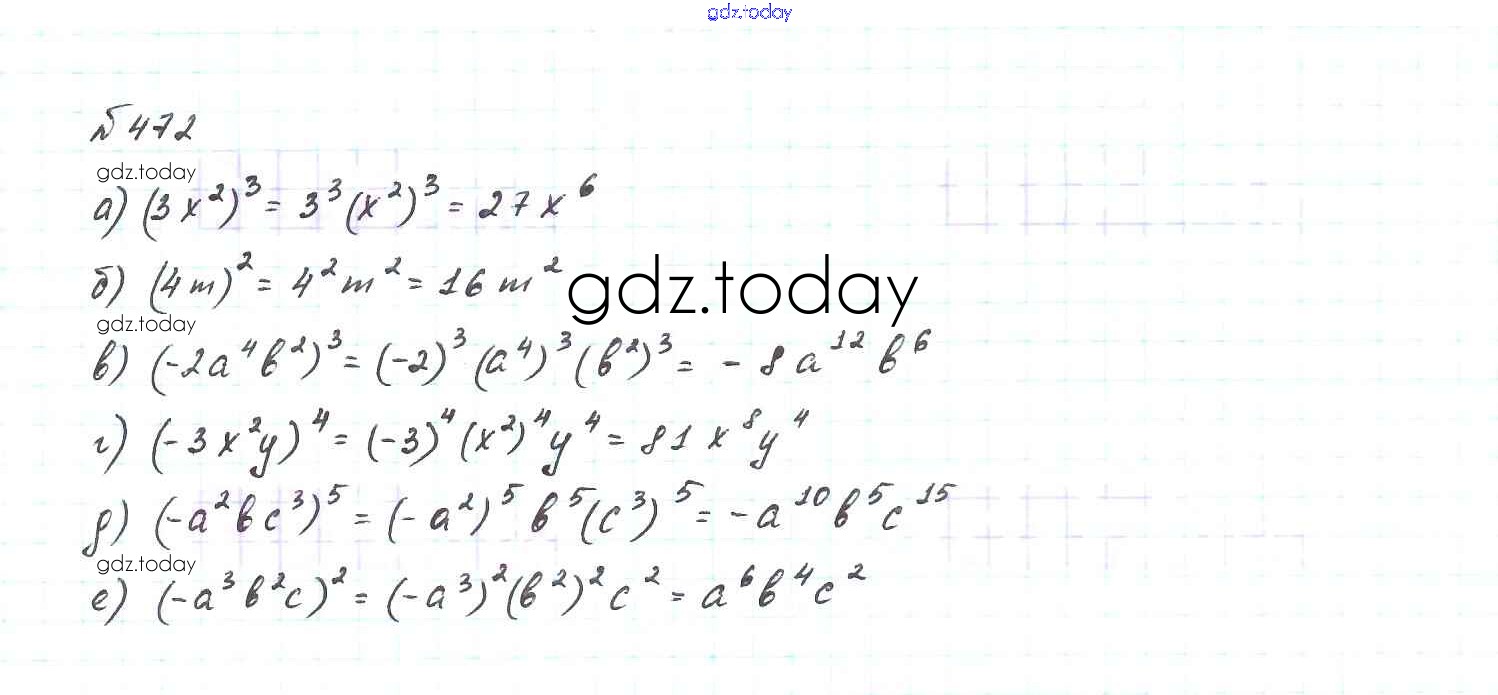 gdz.today
№ 472
gdz.today
а) (3x²)³ = 3³(x²)³ = 27x⁶
б) (4m)² = 4²m² = 16m²
gdz.today
gdz.today
в) (-2a⁴b²)³ = (-2)³(a⁴)³(b²)³ = -8a¹²b⁶
г) (-3x²y)⁴ = (-3)⁴(x²)⁴y⁴ = 81x⁸y⁴
д) (-a²bc³)⁵ = (-a²)⁵b⁵(c³)⁵ = -a¹⁰b⁵c¹⁵
gdz.today
е) (-a³b²c)² = (-a³)²(b²)²c² = a⁶b⁴c²